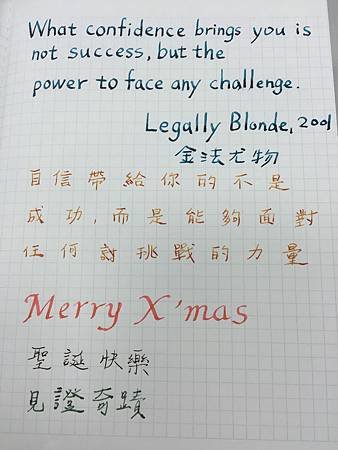 What confidence brings you is
not success, but the
power to face any challenge.
Legally Blonde, 2001
金法尤物
自信帶給你的不是
成功,而是能夠面對
任何討挑戰的力量
Merry X'mas
聖誕快樂
見證奇蹟